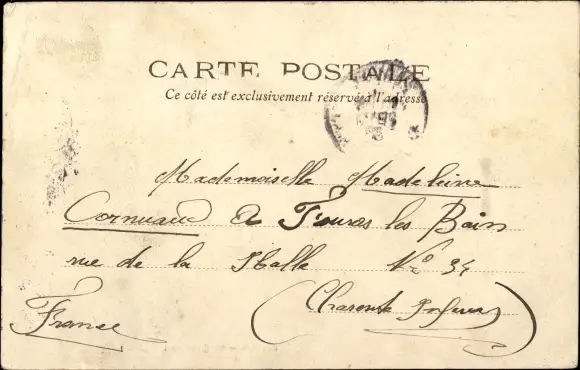 CARTE POSTALE
Ce côté est exclusivement réservé à l'adresse
Mademoiselle Madeleine
Cornuaud a Fouras les Bain
rue de la Halle N° 34
(Charente
France